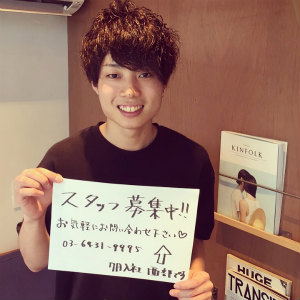 スタッフ募集中!!
お気軽にお問い合わせ下さい♡
03-6431-9995
KINFOLK
HUGE
TRANSI